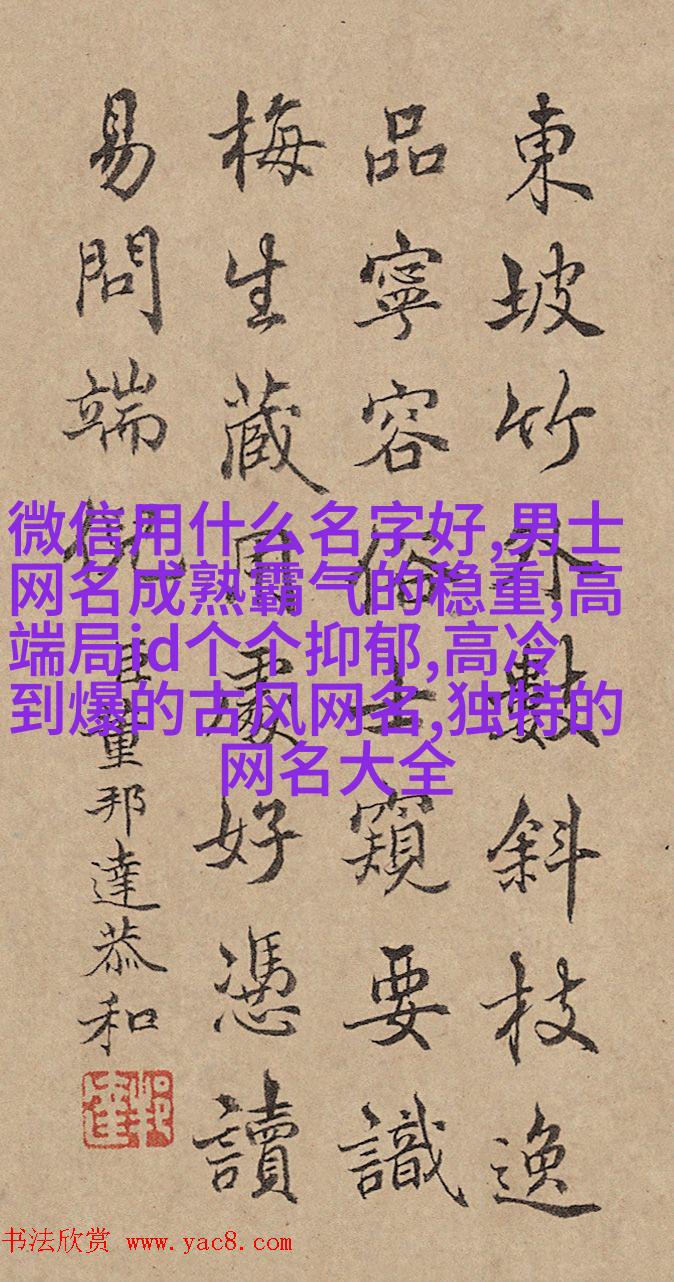 微信用什么名字好,男士
网名成熟霸气的稳重,高
端局id个个抑郁,高冷
到爆的古风网名,独特的
网名大全
東坡竹外數斜枝逸
品寧容俗士窺要識
梅生藏處好憑讀
易問端倪
臣董邦達恭和
书法欣赏 www.yac8.com